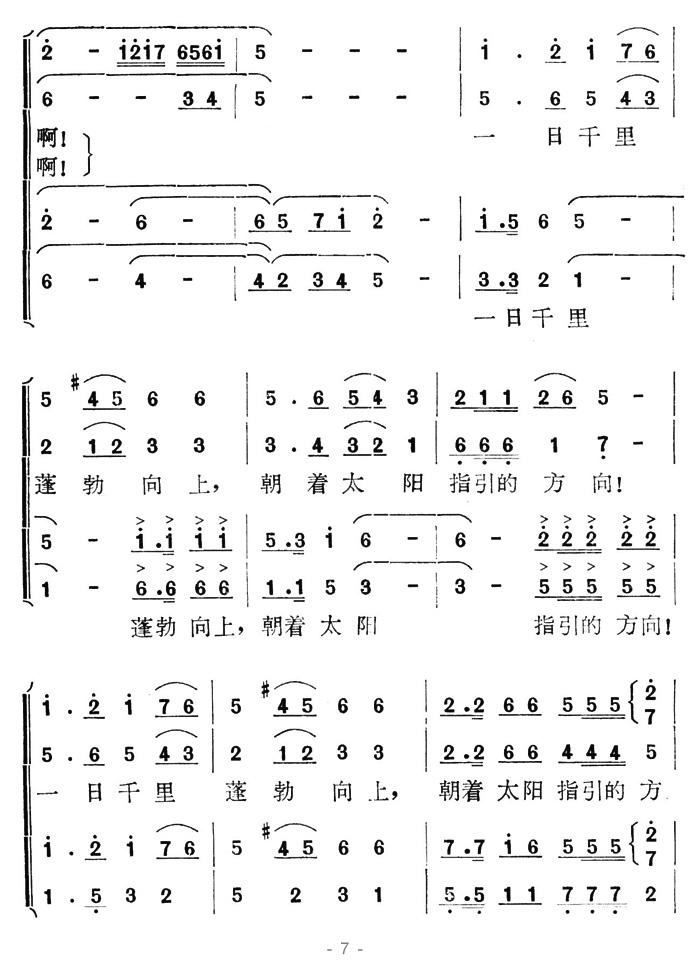 2 - 1217 6561 | 5 - - - | 1 . 2 1 76
6 - - 34 | 5 - - - | 5 . 6 5 43
啊! 一 日千里
啊!
2 - 6 - | 65 71 2 - | 1.5 6 5 -
6 - 4 - | 42 34 5 - | 3.3 2 1 -
一日千里
5 #45 6 6 | 5 . 6 54 3 | 211 26 5 -
2 12 3 3 | 3 . 4 32 1 | 666 1 7 -
蓬 勃 向 上, 朝 着 太 阳 指引的 方 向!
> > > > > > > > >
5 - 1.1 11 | 5.3 1 6 - | 6 - 222 22
> > > > > > > > >
1 - 6.6 66 | 1.1 5 3 - | 3 - 555 55
蓬勃 向上, 朝着 太 阳 指引的 方向!
1 . 2 1 76 | 5 #45 6 6 | 2.2 66 555 {2 7
5 . 6 5 43 | 2 12 3 3 | 2.2 66 444 5
一 日千里 蓬 勃 向 上, 朝着 太阳 指引的 方
1 . 2 1 76 | 5 #45 6 6 | 7.7 16 555 {2 7
1 . 5 3 2 | 5 2 3 1 | 5.5 11 777 2
- 7 -